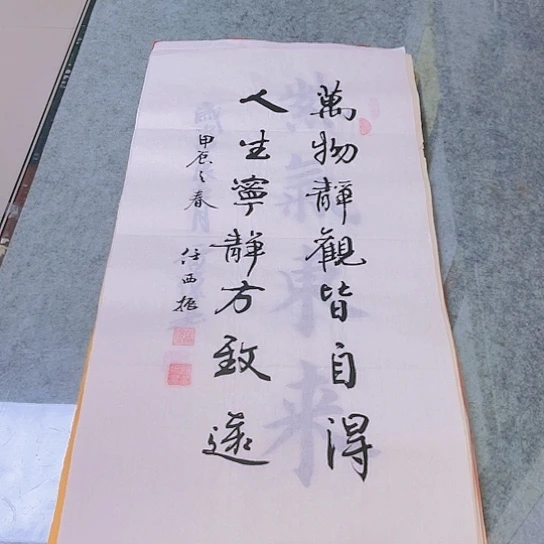 萬物靜觀皆自得
人生寧靜方致遠
甲辰之春
任西振
紫氣東來